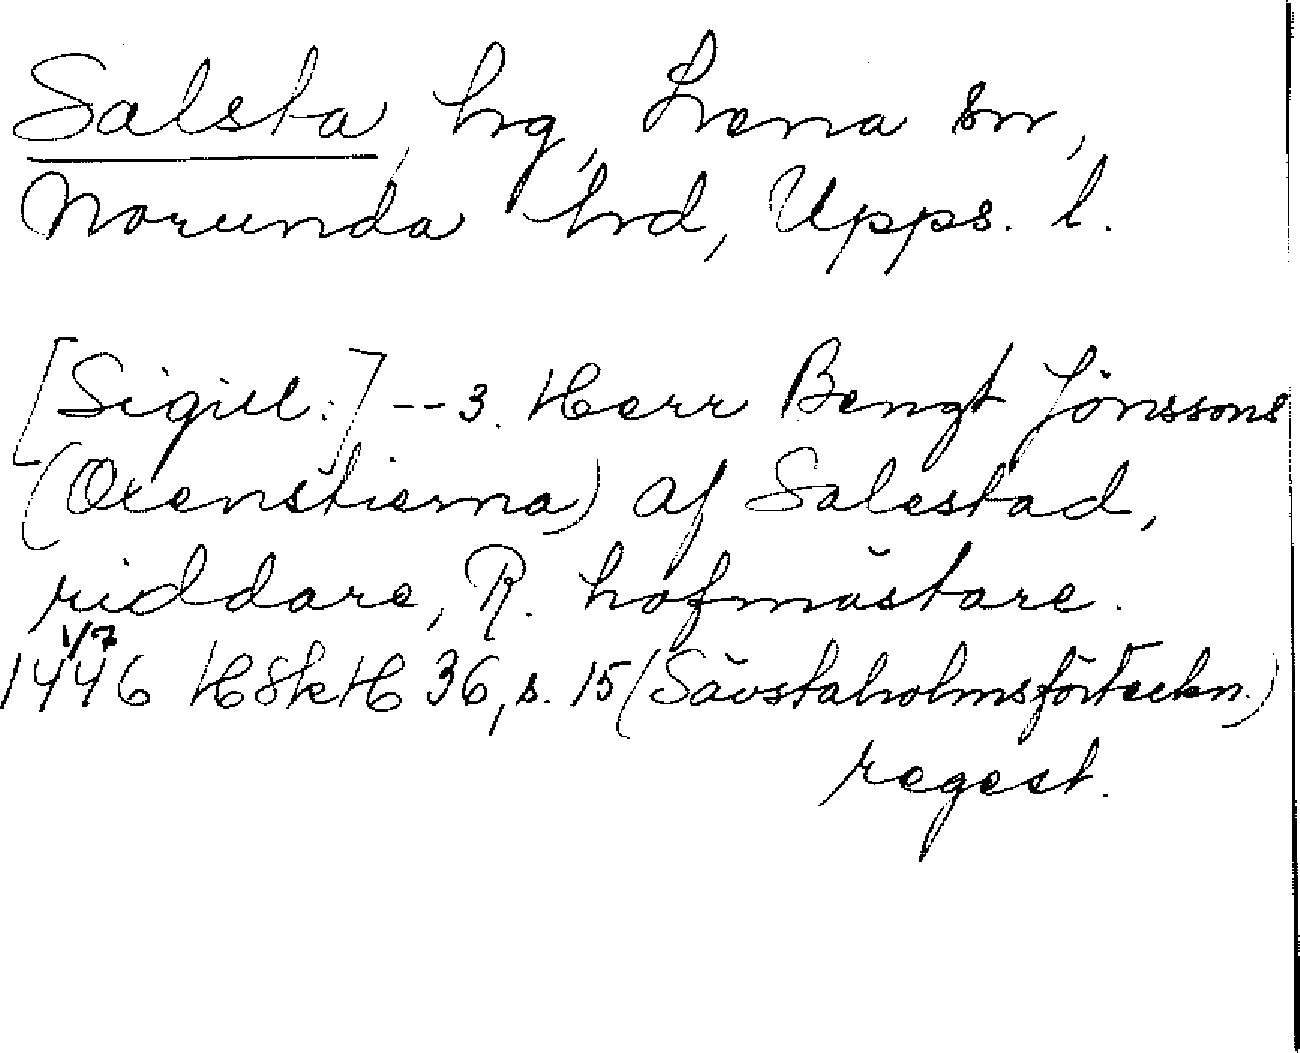 Salsta, hrg, Lena sn,
Norunda hrd, Upps. l.
[Sigill:] -- 3. Herr Bengt Jönssons
(Oxenstierna) af Salestad,
riddare, R. hofmästare.
1/7
1446 HSkH 36, s. 15 (Sävstaholmsförteckn.)
regest.